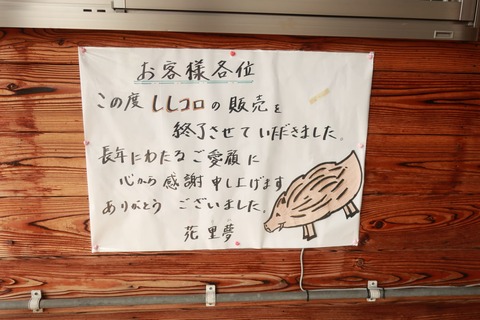 お客様各位
この度 ししコロ の 販売を
終了させて いただきました。
長年にわたる ご愛顧に
心から 感謝 申し上げます
ありがとう ございました。
花里夢